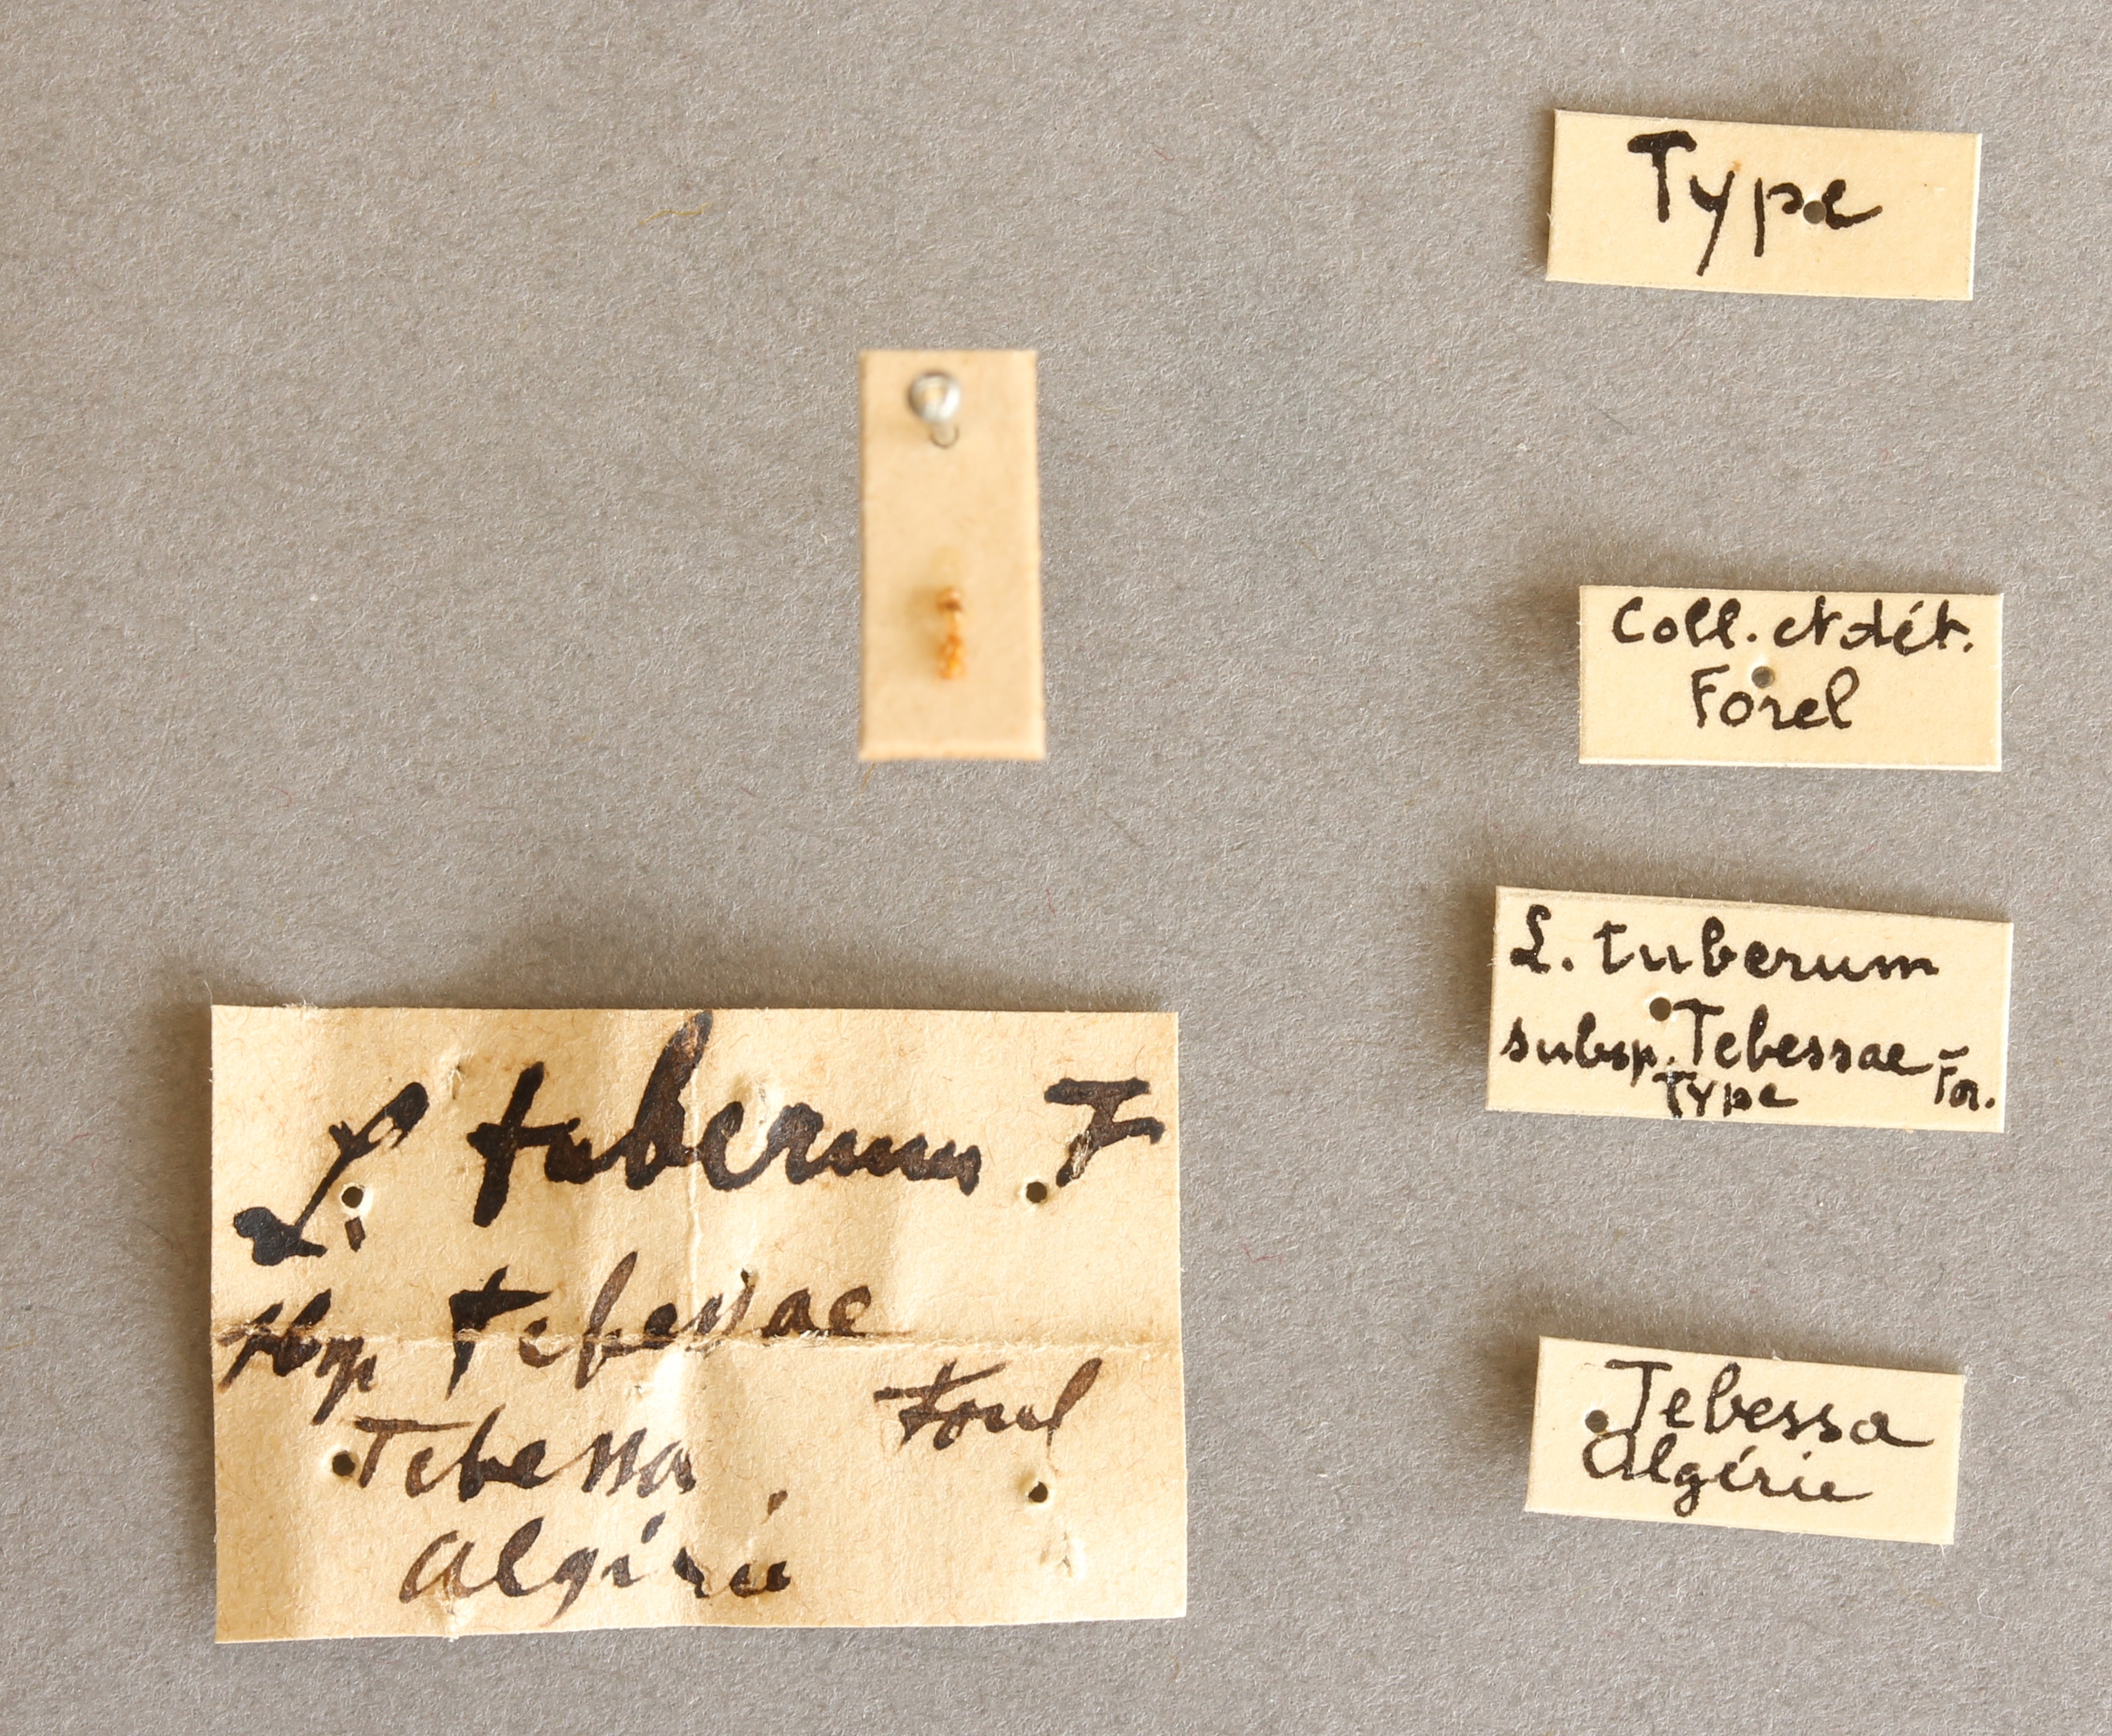 Type
Coll. et dét.
Forel
L. tuberum
subsp. Tebessae For.
Type
Tebessa
Algérie
L. tuberum F
sbsp tebessae
Forel
Tebessa
Algérie